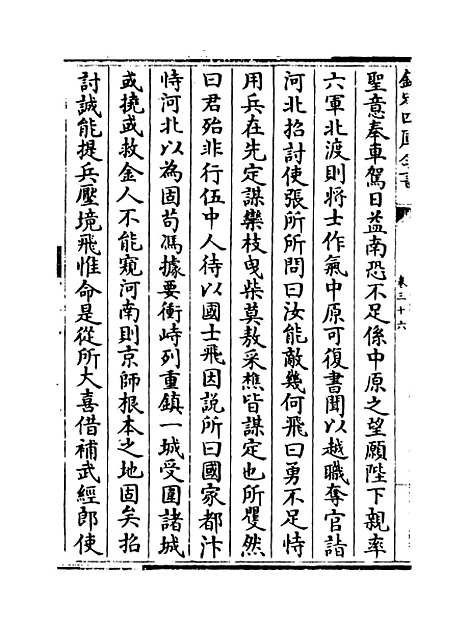 欽定四庫全書
卷三十六
聖意奉車駕日益南恐不足係中原之望願陛下親率
六軍北渡則將士作氣中原可復書聞以越職奪官詣
河北招討使張所所問曰汝能敵幾何飛曰勇不足恃
用兵在先定謀欒枝曳柴莫敖采樵皆謀定也所矍然
曰君殆非行伍中人待以國士飛因說所曰國家都汴
恃河北以為固茍馮據要衝峙列重鎮一城受圍諸城
或撓或救金人不能窺河南則京師根本之地固矣招
討誠能提兵壓境飛惟命是從所大喜借補武經郎使